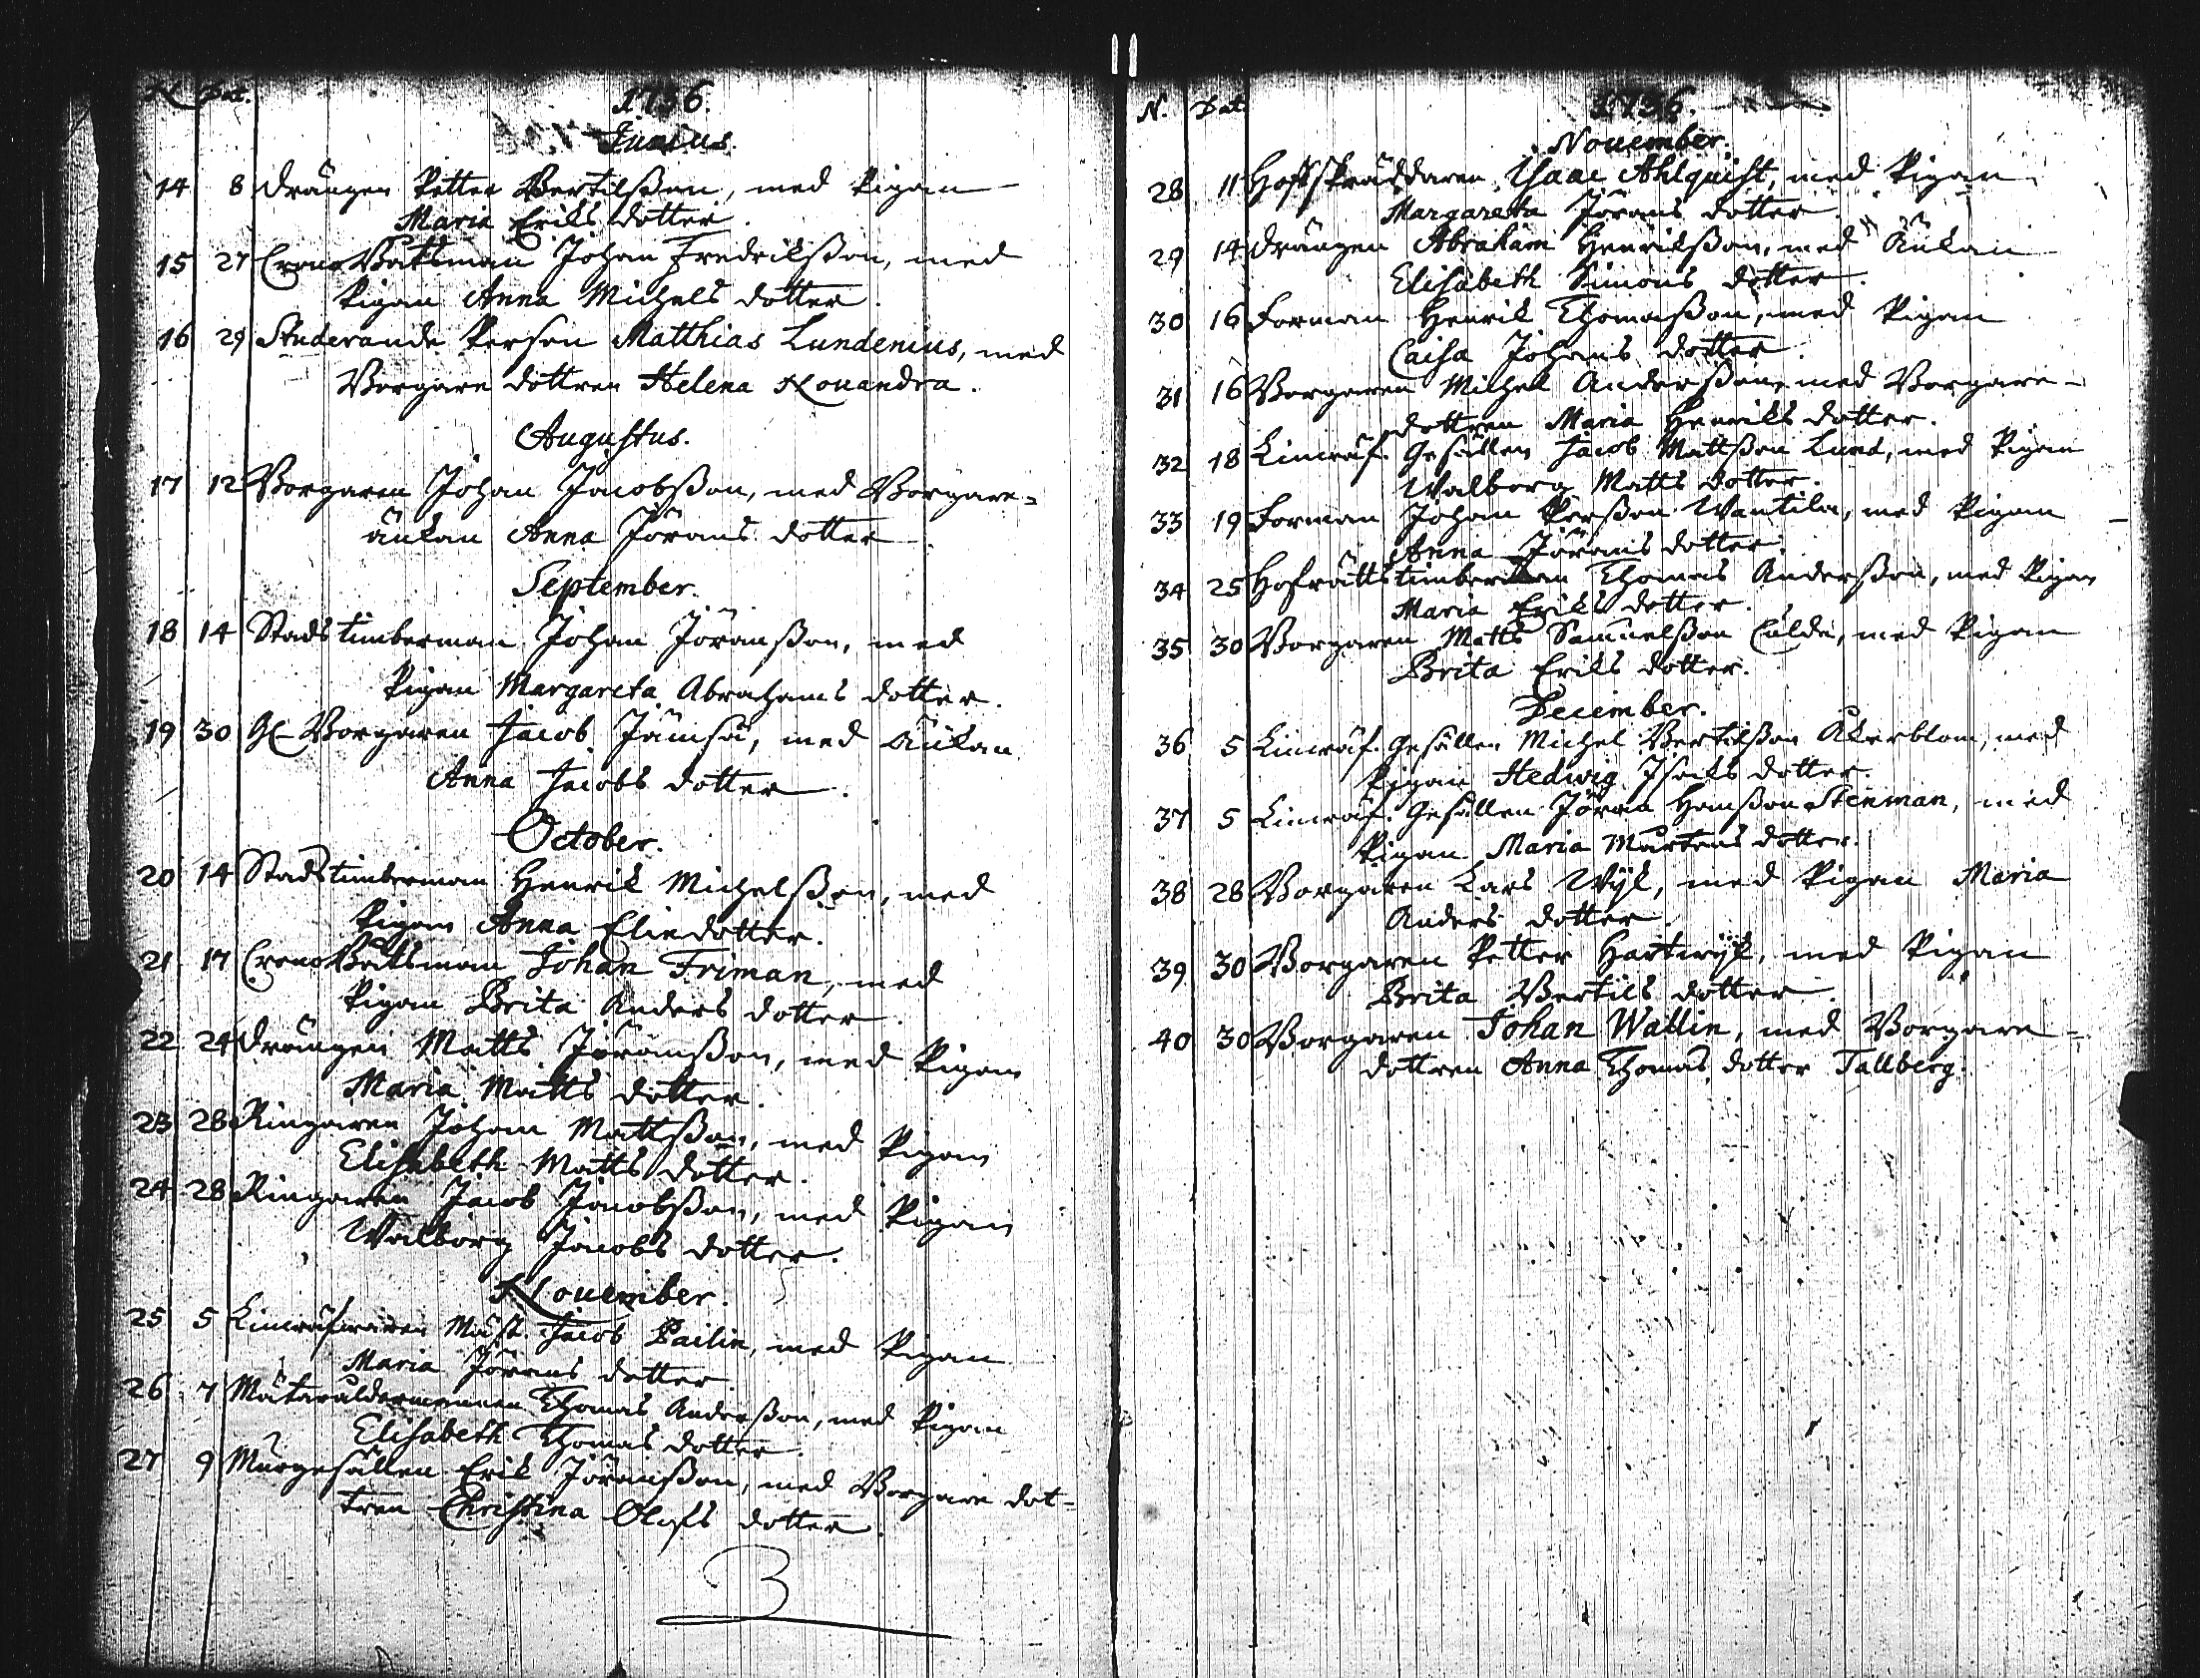 N. Dat.
1736.
Junius.
14 8 Drängen Petter Bertilßon, med Pigan
Maria Eriks dotter.
15 27 Crono Båtsman Johan Fredrikßon, med
Pigan Anna Michels dotter.
16 29 Studerande Person Matthias Lundenius, med
Borgare dottren Helena Nouandra.
Augustus.
17 12 Borgaren Johan Jacobßon, med Borgare=
änkan Anna Jörans dotter.
September.
18 14 Stads timberman Johan Jöranßon, med
Pigan Margareta Abrahams dotter.
19 30 Gl Borgaren Jacob Jämsä, med Änkan
Anna Jacobs dotter.
October.
20 14 Stads timberman Henrik Michelßon, med
Pigan Anna Elin dotter.
21 17 Crono Båtsman Johan Friman, med
Pigan Brita Anders dotter.
22 24 Drängen Matts Jöranßon, med Pigan
Maria Matts dotter.
23 28 Ringaren Johan Mattßon, med Pigan
Elisabeth Matts dotter.
24 28 Ringaren Jacob Jacobßon, med Pigan
Walborg Jacobs dotter.
Nouember.
25 5 Linwäfwaren Mäst. Jacob Pailin, med Pigan
Maria Jörans dotter.
26 7 Mätaråldermannen Thomas Anderßon, med Pigan
Elisabeth Thomas dotter.
27 9 Murgesällen Erik Jöranßon, med Borgare dot=
tren Christina Olofs dotter.
N. Dat.
1736.
Nouember.
28 11 Hofskräddaren Isaac Ahlquist, med Pigan
Margareta Jörans dotter.
29 14 Drängen Abraham Henrikßon, med Änkan
Elisabeth Simons dotter.
30 16 Forman Henrik Thomaßon, med Pigan
Caisa Johans dotter.
31 16 Borgaren Michel Anderßon, med Borgare-
dottren Maria Henriks dotter.
32 18 Linwäf. Gesällen Jacob Mattßon Lund, med Pigan
Walborg Matts dotter.
33 19 Forman Johan Perßon Wantila, med Pigan
Anna Jörans dotter.
34 25 Hofrätts timberman Thomas Anderßon, med Pigan
Maria Eriks dotter.
35 30 Borgaren Matts Samuelßon Cülde, med Pigan
Brita Eriks dotter.
December.
36 5 Linwäf. Gesällen Michel Bertilßon Åkerblom, med
Pigan Hedwig Isaks dotter.
37 5 Linwäf. Gesällen Jöran Hanßon Stenman, med
Pigan Maria Mårtens dotter.
38 28 Borgaren Lars Wijk, med Pigan Maria
Anders dotter.
39 30 Borgaren Petter Hartwijk, med Pigan
Brita Bertils dotter.
40 30 Borgaren Johan Wallin, med Borgare=
dottren Anna Thomas dotter Tallberg.